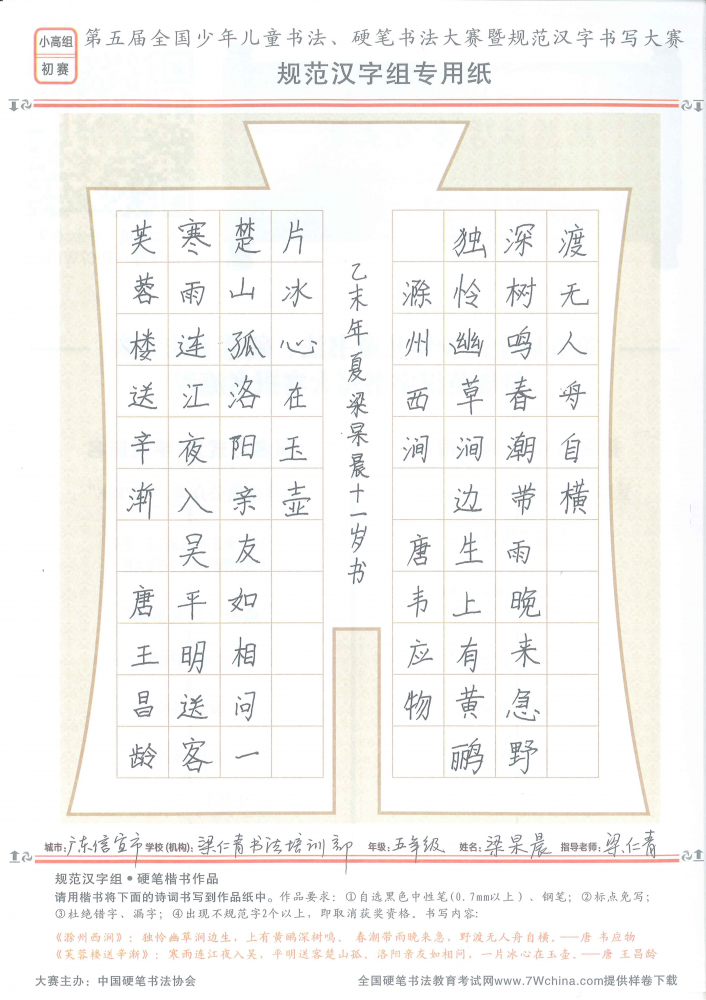 小高组
初赛
第五届全国少年儿童书法、硬笔书法大赛暨规范汉字书写大赛
规范汉字组专用纸
芙蓉楼送辛渐 唐王昌龄
寒雨连江夜入吴平明送客
楚山孤洛阳亲友如相问一
片冰心在玉壶
乙未年夏梁杲晨十一岁书
滁州西涧 唐韦应物
独怜幽草涧边生上有黄鹂
深树鸣春潮带雨晚来急野
渡无人舟自横
城市:广东信宜市 学校(机构):梁仁青书法培训部 年级:五年级 姓名:梁杲晨 指导老师:梁仁青
规范汉字组•硬笔楷书作品
请用楷书将下面的诗词书写到作品纸中。作品要求：①自选黑色中性笔(0.7mm以上)、钢笔；②标点免写；
③杜绝错字、漏字；④出现不规范字2个以上，即取消获奖资格。书写内容:
《滁州西涧》：独怜幽草涧边生，上有黄鹂深树鸣。 春潮带雨晚来急，野渡无人舟自横。——唐 韦应物
《芙蓉楼送辛渐》：寒雨连江夜入吴，平明送客楚山孤。洛阳亲友如相问，一片冰心在玉壶。——唐 王昌龄
大赛主办：中国硬笔书法协会 全国硬笔书法教育考试网www.7Wchina.com提供样卷下载